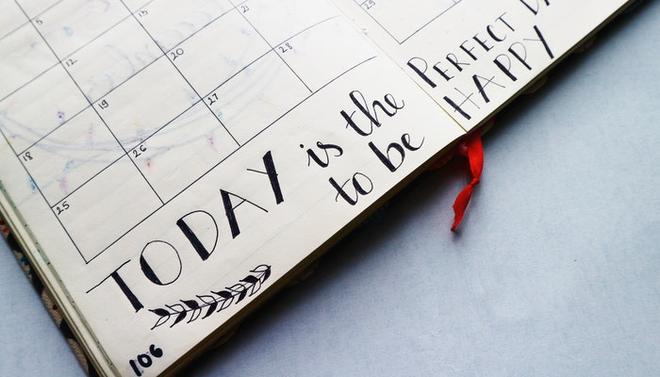 5
12
19
20
21
18
26
27
28
25
29
TODAY is the
to be
PERFECT DA
HAPPY
106